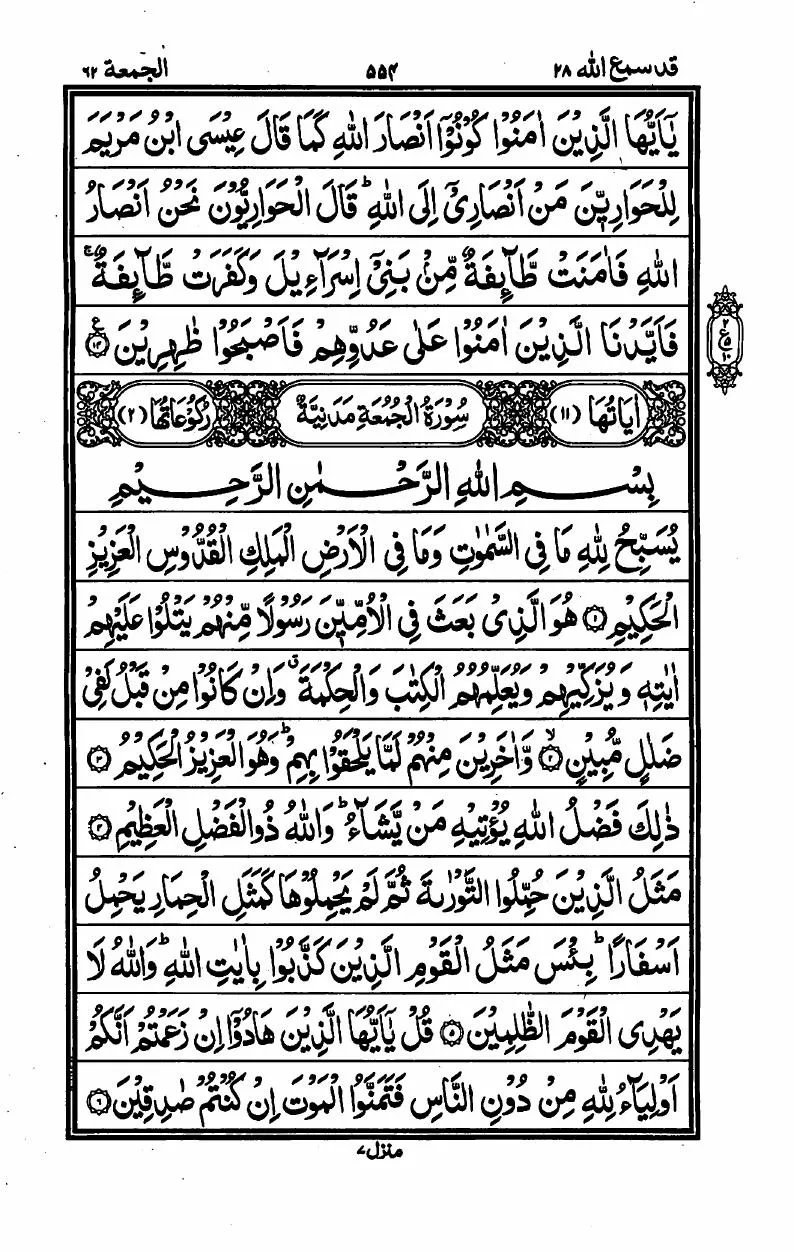 قد سمع الله ٢٨
٥٥٤
الجمعة ٦٢
يٰۤاَيُّهَا الَّذِيْنَ اٰمَنُوْا كُوْنُوْۤا اَنْصَارَ اللّٰهِ كَمَا قَالَ عِيْسَى ابْنُ مَرْيَمَ
لِلْحَوَارِيّٖنَ مَنْ اَنْصَارِيْۤ اِلَى اللّٰهِ ؕ قَالَ الْحَوَارِيُّوْنَ نَحْنُ اَنْصَارُ
اللّٰهِ فَاٰمَنَتْ طَّآىِٕفَةٌ مِّنْۢ بَنِيْۤ اِسْرَآءِيْلَ وَكَفَرَتْ طَّآىِٕفَةٌ ۚ
فَاَيَّدْنَا الَّذِيْنَ اٰمَنُوْا عَلٰى عَدُوِّهِمْ فَاَصْبَحُوْا ظٰهِرِيْنَ ﴿١٤﴾ ع
٢
ع
٥
١٠
اٰيَاتُهَا (١١) سُوْرَةُ الْجُمُعَةِ مَدَنِيَّةٌ رُكُوْعَاتُهَا (٢)
بِسْمِ اللّٰهِ الرَّحْمٰنِ الرَّحِيْمِ
يُسَبِّحُ لِلّٰهِ مَا فِي السَّمٰوٰتِ وَمَا فِي الْاَرْضِ الْمَلِكِ الْقُدُّوْسِ الْعَزِيْزِ
الْحَكِيْمِ ﴿١﴾ هُوَ الَّذِيْ بَعَثَ فِي الْاُمِّيّٖنَ رَسُوْلًا مِّنْهُمْ يَتْلُوْا عَلَيْهِمْ
اٰيٰتِهٖ وَيُزَكِّيْهِمْ وَيُعَلِّمُهُمُ الْكِتٰبَ وَالْحِكْمَةَ ۗ وَاِنْ كَانُوْا مِنْ قَبْلُ لَفِيْ
ضَلٰلٍ مُّبِيْنٍ ﴿٢﴾ وَّاٰخَرِيْنَ مِنْهُمْ لَمَّا يَلْحَقُوْا بِهِمْ ؕ وَهُوَ الْعَزِيْزُ الْحَكِيْمُ ﴿٣﴾
ذٰلِكَ فَضْلُ اللّٰهِ يُؤْتِيْهِ مَنْ يَّشَآءُ ؕ وَاللّٰهُ ذُو الْفَضْلِ الْعَظِيْمِ ﴿٤﴾
مَثَلُ الَّذِيْنَ حُمِّلُوا التَّوْرٰىةَ ثُمَّ لَمْ يَحْمِلُوْهَا كَمَثَلِ الْحِمَارِ يَحْمِلُ
اَسْفَارًا ؕ بِئْسَ مَثَلُ الْقَوْمِ الَّذِيْنَ كَذَّبُوْا بِاٰيٰتِ اللّٰهِ ؕ وَاللّٰهُ لَا
يَهْدِي الْقَوْمَ الظّٰلِمِيْنَ ﴿٥﴾ قُلْ يٰۤاَيُّهَا الَّذِيْنَ هَادُوْۤا اِنْ زَعَمْتُمْ اَنَّكُمْ
اَوْلِيَآءُ لِلّٰهِ مِنْ دُوْنِ النَّاسِ فَتَمَنَّوُا الْمَوْتَ اِنْ كُنْتُمْ صٰدِقِيْنَ ﴿٦﴾
منزل ٧